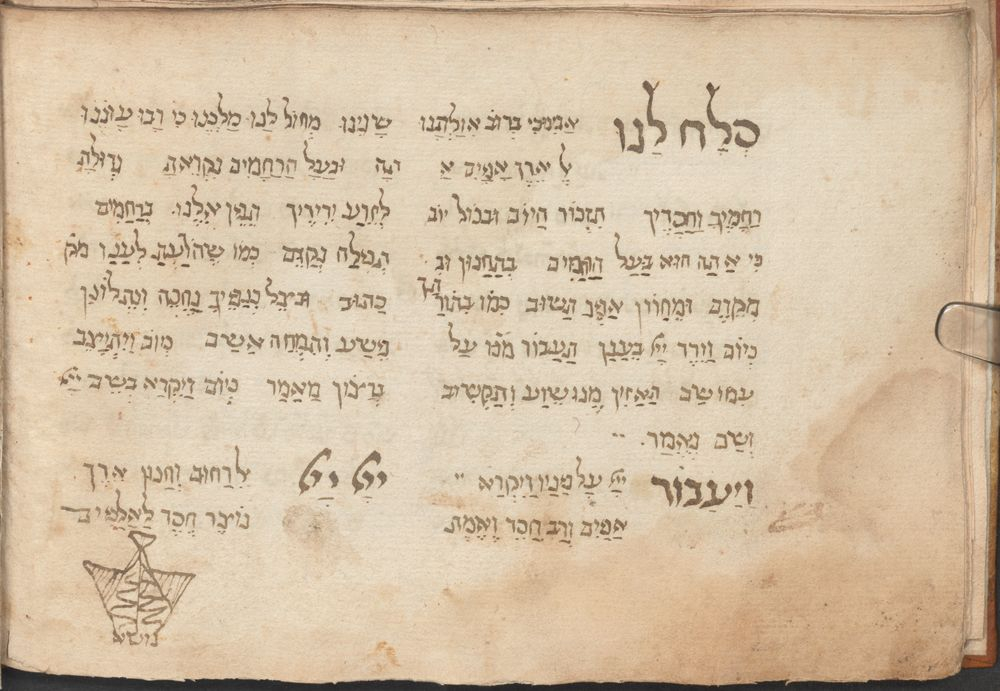 סְלַח לָנוּ אָבִינוּ כִּי בְרוֹב אִוַלְתֵּנוּ שָׁגִינוּ מְחוֹל לָנוּ מַלְכֵּנוּ כִּי רַבּוּ עֲוֹנֵנוּ
אֵל אֶרֶךְ אַפַּיִם אַתָּה וּבַעַל הָרַחֲמִים נִקְרֵאתָ גְדוּלַת
רַחֲמֶיךָ וַחֲסָדֶיךָ תִזְכּוֹר הַיוֹם וּבְכוֹל יוֹם לְזֶרַע יְדִידֶיךָ תֵּפֶן אֵלֵנוּ בְּרַחֲמִים
כִּי אַתָּה הוּא בַּעַל הָרַחֲמִים בְּתַחֲנוּן וּבִתְפִלָּה נְקַדֵּם כְּמוֹ שֶׁהוֹדַעְתָּ לֶעָנָו מִקֶּ
מִקֶּדֶם וּמֵחֲרוֹן אַפְּךָ תָּשׁוּב כְּמוֹ בְּתוֹרָתְךָ כָּתוּב וּבְצֵל כְּנָפֶיךָ נֶחֱסֶה וְנִתְלוֹנָן
כְּיוֹם וַיֵרֶד ייָ בֶּעָנָן תַּעֲבוֹר עַל פֶּשַׁע וְתִמְחֶה אָשָׁם כְּיוֹם וַיִתְיַצֵב
עִמוֹ שָׁם תַּאֲזִין שַׁוְעֵנוּ וְתַקְשִׁיב מַאֲמָר כְּיוֹם וַיִקְרָא בְּשֵׁם ייָ
וְשָׁם נֶאֱמַר
וַיַעֲבוֹר ייָ עַל פָּנָיו וַיִקְרָא ייָ ייָ אֵל רַחוּם וְחַנוּן אֶרֶךְ
אַפַּיִם וְרַב חֶסֶד וֶאֱמֶת נוֹצֵר חֶסֶד לָאֲלָפִים
נוֹשֵׂא